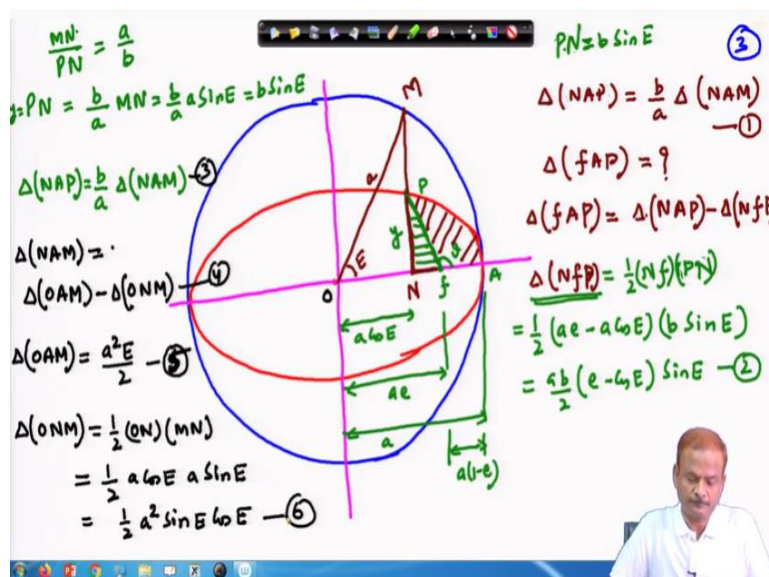 MN/PN = a/b
y=PN = b/a MN = b/a a SinE = b SinE
Δ(NAP) = b/a Δ(NAM) - ③
Δ(NAM) = .
Δ(OAM) - Δ(ONM) - ④
Δ(OAM) = a²E/2 - ⑤
Δ(ONM) = 1/2 (ON) (MN)
= 1/2 a CosE a SinE
= 1/2 a² SinE CosE - ⑥
M
a
P
E
y
θ
O
N
f
A
a CosE
ae
a
a(1-e)
PN = b SinE
③
Δ(NAP) = b/a Δ(NAM)
- ①
Δ(fAP) = ?
Δ(fAP) = Δ(NAP) - Δ(NfP
Δ(NfP) = 1/2 (Nf) (PN)
= 1/2 (ae - a CosE) (b SinE)
= ab/2 (e - CosE) SinE - ②